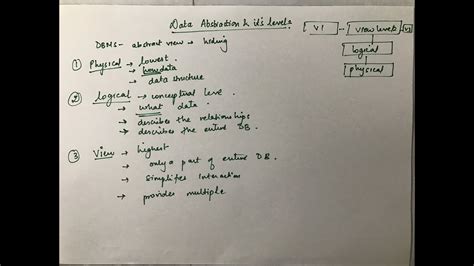 Data Abstraction & it's levels
DBMS - abstract view → hiding
① Physical → lowest.
→ how data
→ data structure
② Logical → conceptual level.
→ what data.
→ describes the relationships
→ describes the entire DB.
③ View → highest
→ only a part of entire DB.
→ simplifies interaction
→ provides multiple
V1 -- view level
logical
physical